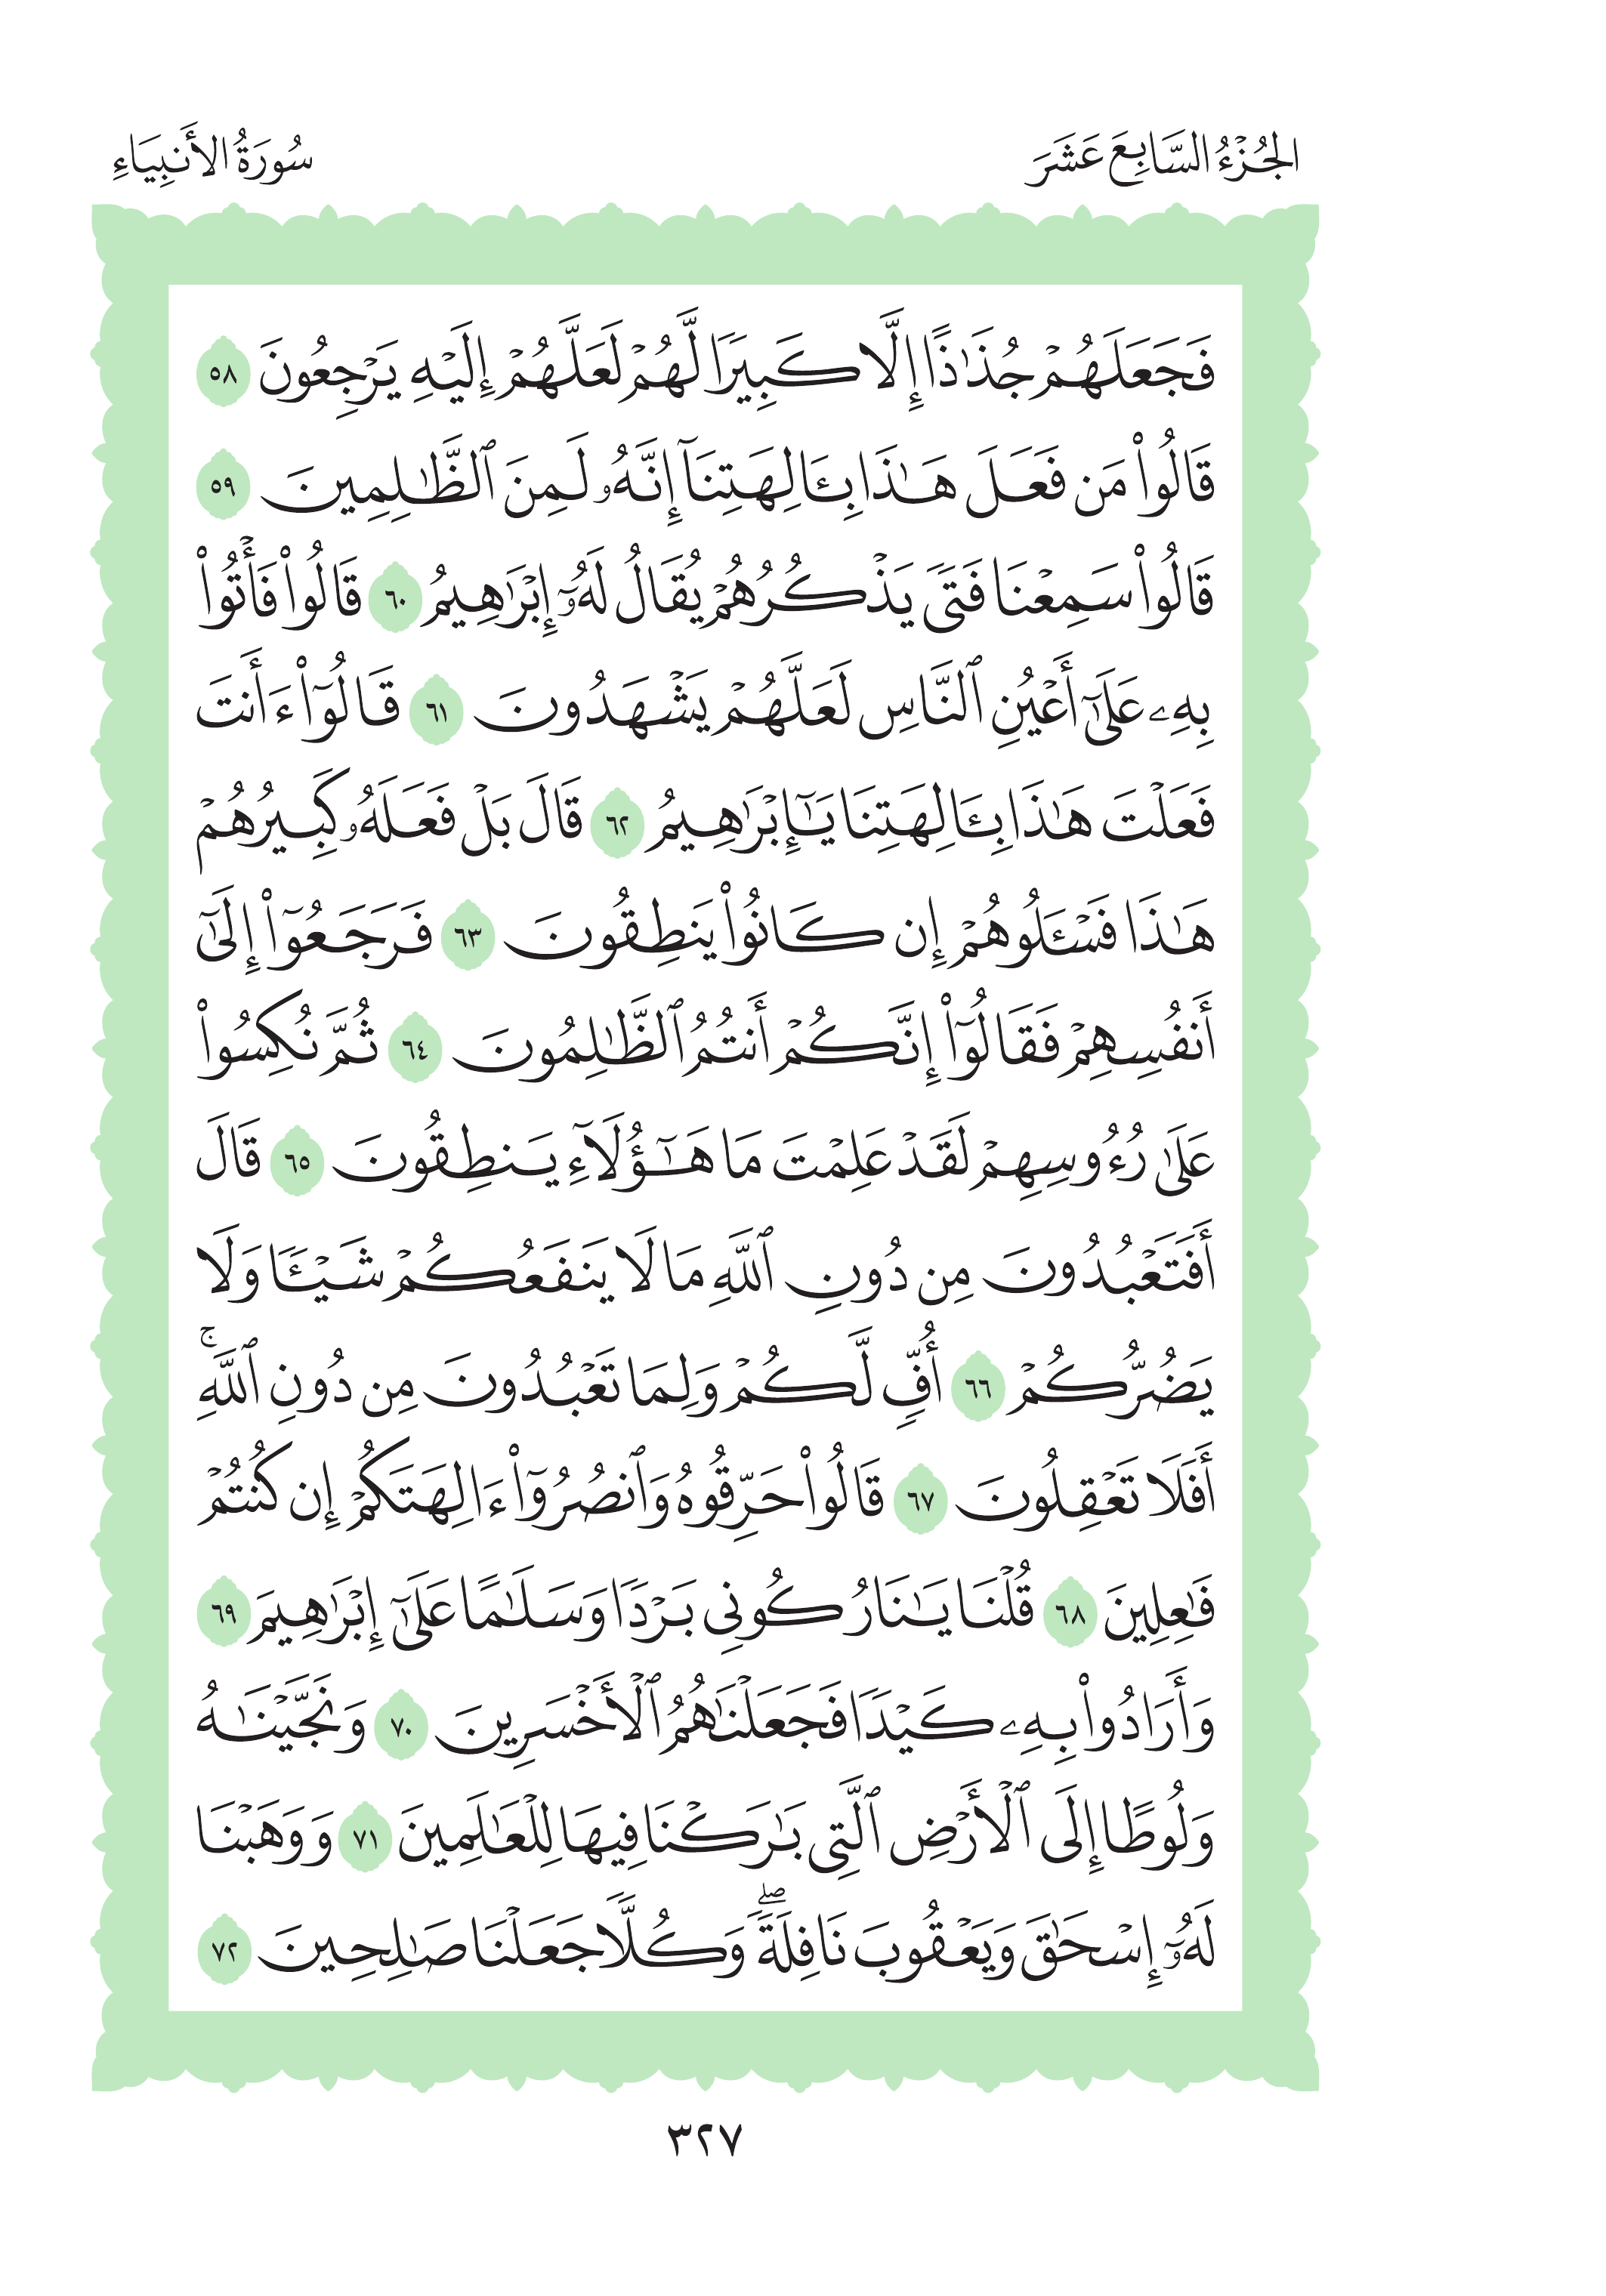 الجُزْءُ السَّابِعَ عَشَرَ
سُورَةُ الأَنبِيَاءِ
فَجَعَلَهُمْ جُذَٰذًا إِلَّا كَبِيرًا لَّهُمْ لَعَلَّهُمْ إِلَيْهِ يَرْجِعُونَ ٥٨
قَالُوا۟ مَن فَعَلَ هَٰذَا بِـَٔالِهَتِنَآ إِنَّهُۥ لَمِنَ ٱلظَّٰلِمِينَ ٥٩
قَالُوا۟ سَمِعْنَا فَتًى يَذْكُرُهُمْ يُقَالُ لَهُۥٓ إِبْرَٰهِيمُ ٦٠ قَالُوا۟ فَأْتُوا۟
بِهِۦ عَلَىٰٓ أَعْيُنِ ٱلنَّاسِ لَعَلَّهُمْ يَشْهَدُونَ ٦١ قَالُوٓا۟ ءَأَنتَ
فَعَلْتَ هَٰذَا بِـَٔالِهَتِنَا يَٰٓإِبْرَٰهِيمُ ٦٢ قَالَ بَلْ فَعَلَهُۥ كَبِيرُهُمْ
هَٰذَا فَسْـَٔلُوهُمْ إِن كَانُوا۟ يَنطِقُونَ ٦٣ فَرَجَعُوٓا۟ إِلَىٰٓ
أَنفُسِهِمْ فَقَالُوٓا۟ إِنَّكُمْ أَنتُمُ ٱلظَّٰلِمُونَ ٦٤ ثُمَّ نُكِسُوا۟
عَلَىٰ رُءُوسِهِمْ لَقَدْ عَلِمْتَ مَا هَٰٓؤُلَآءِ يَنطِقُونَ ٦٥ قَالَ
أَفَتَعْبُدُونَ مِن دُونِ ٱللَّهِ مَا لَا يَنفَعُكُمْ شَيْـًٔا وَلَا
يَضُرُّكُمْ ٦٦ أُفٍّ لَّكُمْ وَلِمَا تَعْبُدُونَ مِن دُونِ ٱللَّهِۚ
أَفَلَا تَعْقِلُونَ ٦٧ قَالُوا۟ حَرِّقُوهُ وَٱنصُرُوٓا۟ ءَالِهَتَكُمْ إِن كُنتُمْ
فَٰعِلِينَ ٦٨ قُلْنَا يَٰنَارُ كُونِى بَرْدًا وَسَلَٰمًا عَلَىٰٓ إِبْرَٰهِيمَ ٦٩
وَأَرَادُوا۟ بِهِۦ كَيْدًا فَجَعَلْنَٰهُمُ ٱلْأَخْسَرِينَ ٧٠ وَنَجَّيْنَٰهُ
وَلُوطًا إِلَى ٱلْأَرْضِ ٱلَّتِى بَٰرَكْنَا فِيهَا لِلْعَٰلَمِينَ ٧١ وَوَهَبْنَا
لَهُۥٓ إِسْحَٰقَ وَيَعْقُوبَ نَافِلَةًۖ وَكُلًّا جَعَلْنَا صَٰلِحِينَ ٧٢
٣٢٧